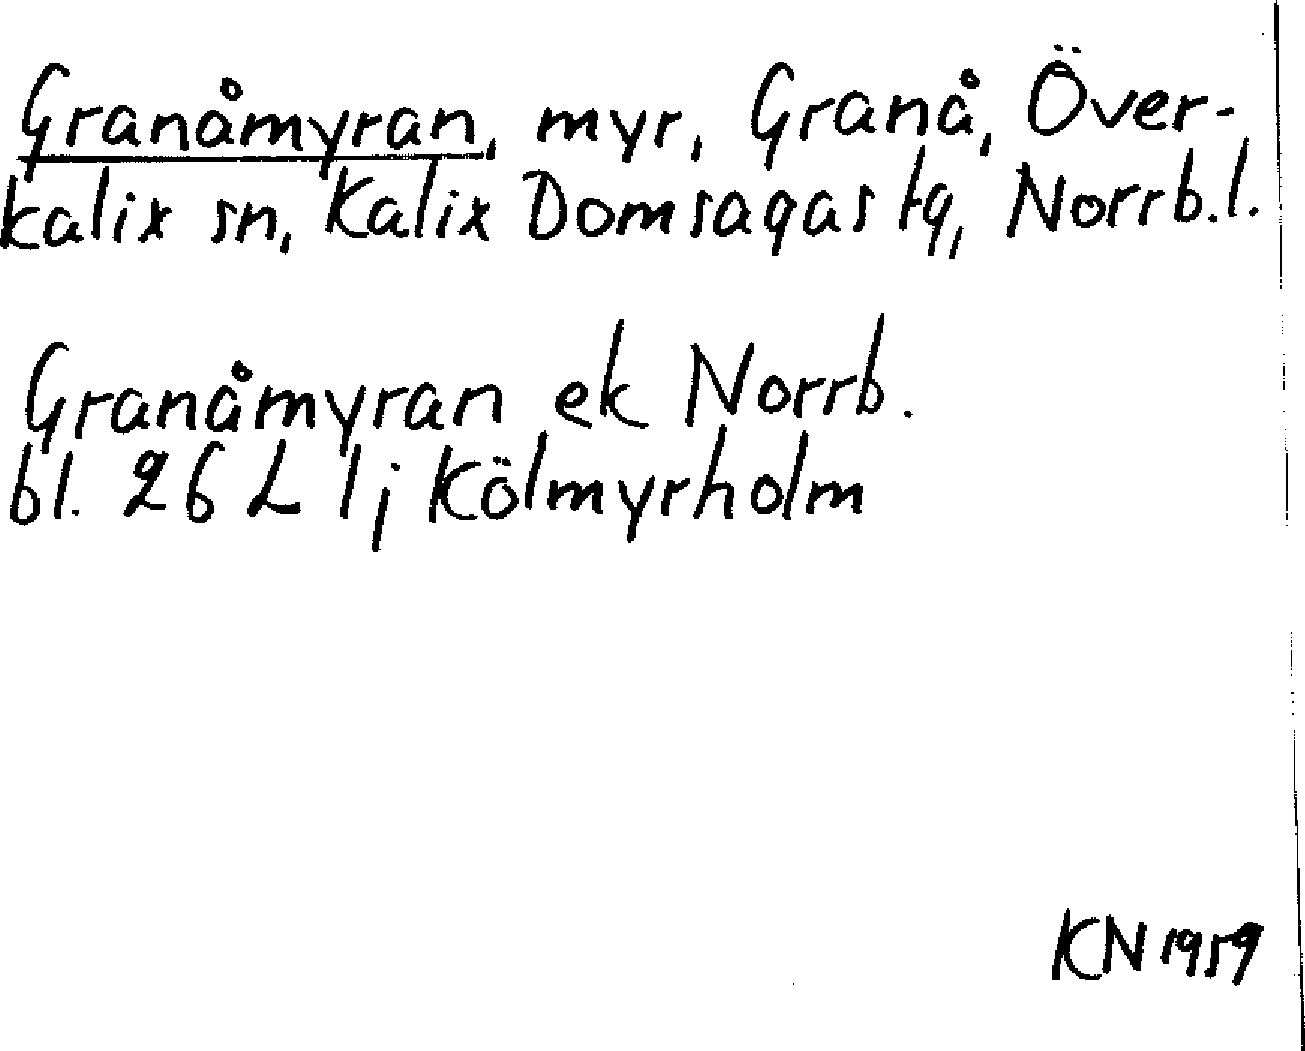 Granåmyran, myr, Granå, Över-
kalix sn, Kalix Domsagas tg, Norrb.l.
Granåmyran ek Norrb.
bl. 26 L 1j Kölmyrholm
KN 1959